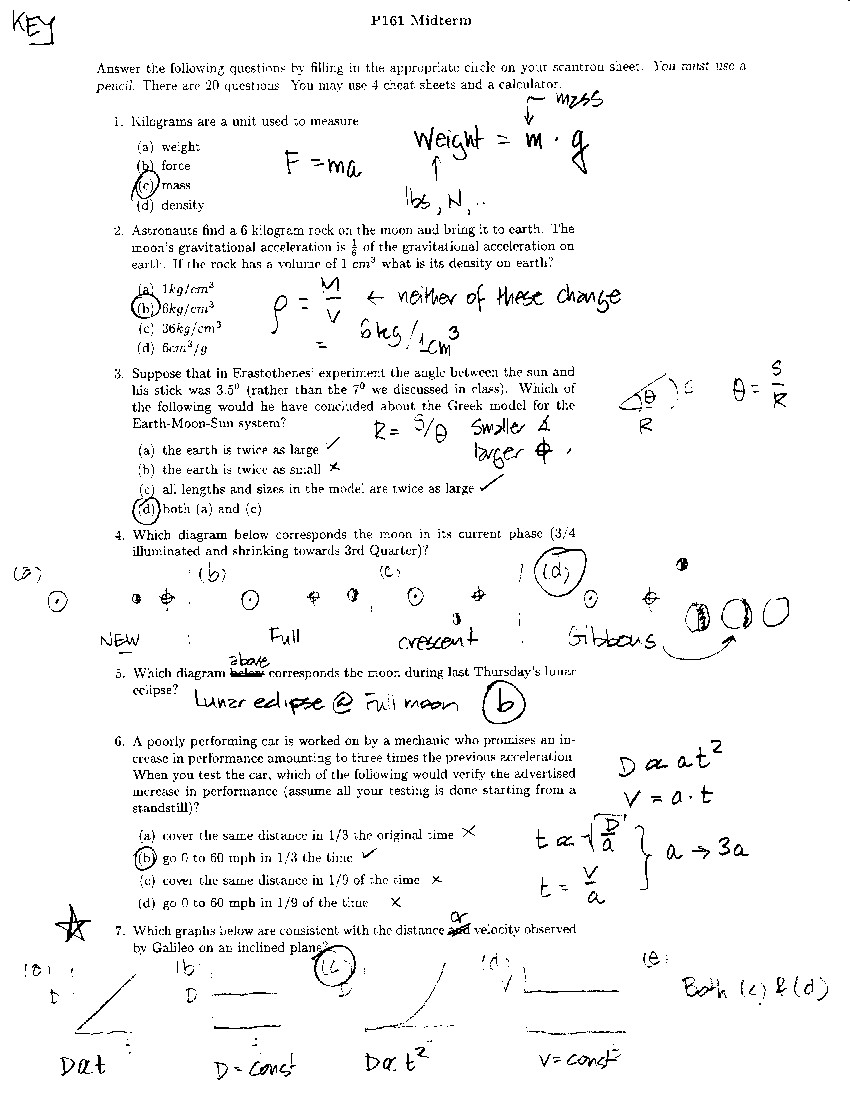 KEY
P161 Midterm
Answer the following questions by filling in the appropriate circle on your scantron sheet. You must use a
pencil. There are 20 questions. You may use 4 cheat sheets and a calculator.
← mass
1. Kilograms are a unit used to measure
Weight = m · g
(a) weight
(b) force
F = ma
(c) mass
lbs, N, ..
(d) density
2. Astronauts find a 6 kilogram rock on the moon and bring it to earth. The
moon's gravitational acceleration is 1/6 of the gravitational acceleration on
earth. If the rock has a volume of 1 cm³ what is its density on earth?
(a) 1kg/cm³
ρ = M/V ← neither of these change
(b) 6kg/cm³
(c) 36kg/cm³
= 6kg/1cm³
(d) 6cm³/g
3. Suppose that in Erastothenes' experiment the angle between the sun and
his stick was 3.5⁰ (rather than the 7⁰ we discussed in class). Which of
the following would he have concluded about the Greek model for the
Earth-Moon-Sun system?
θ S R
θ = S/R
R = S/θ smaller ∡
larger ⊕
(a) the earth is twice as large ✓
(b) the earth is twice as small ×
(c) all lengths and sizes in the model are twice as large ✓
(d) both (a) and (c)
4. Which diagram below corresponds the moon in its current phase (3/4
illuminated and shrinking towards 3rd Quarter)?
(a) (b) (c) (d)
NEW Full crescent Gibbous
above
5. Which diagram below corresponds the moon during last Thursday's lunar
eclipse?
Lunar eclipse @ Full moon (b)
6. A poorly performing car is worked on by a mechanic who promises an in-
crease in performance amounting to three times the previous acceleration.
When you test the car, which of the following would verify the advertised
increase in performance (assume all your testing is done starting from a
standstill)?
D ∝ at²
V = a · t
(a) cover the same distance in 1/3 the original time ×
(b) go 0 to 60 mph in 1/3 the time ✓
(c) cover the same distance in 1/9 of the time ×
(d) go 0 to 60 mph in 1/9 of the time ×
t ∝ √D/a
t = V/a
} a → 3a
or
7. Which graphs below are consistent with the distance and velocity observed
by Galileo on an inclined plane?
(a) (b) (c) (d) (e)
D D D V Both (c) & (d)
t
D α t D = const D α t² V = const